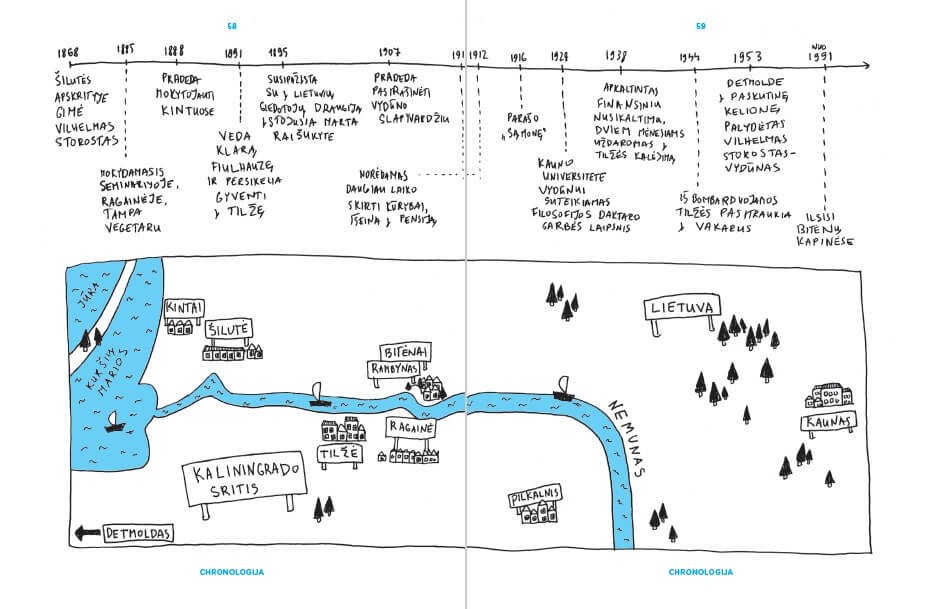 58
59
1868
ŠILUTĖS
APSKRITYJE
GIMĖ
VILHELMAS
STOROSTAS
MOKYDAMASIS
SEMINARIJOJE,
RAGAINĖJE,
TAMPA
VEGETARU
1888
PRADEDA
MOKYTOJAUTI
KINTUOSE
1891
VEDA
KLARĄ
FIULHAUZĘ
IR PERSIKELIA
GYVENTI
Į TILŽĘ
1895
SUSIPAŽĮSTA
SU LIETUVIŲ
GIEDOTOJŲ DRAUGIJA
ĮSTOJUSIA MARTA
RAIŠUKYTE
1907
PRADEDA
PASIRAŠINĖTI
VYDŪNO
SLAPYVARDŽIU
1911
1912
NORĖDAMAS
DAUGIAU LAIKO
SKIRTI KŪRYBAI,
IŠEINA Į PENSIJĄ
1916
PARAŠO
„SĄMONĘ"
1928
KAUNO
UNIVERSITETE
VYDŪNUI
SUTEIKIAMAS
FILOSOFIJOS DAKTARO
GARBĖS LAIPSNIS
1938
APKALTINTAS
FINANSINIU
NUSIKALTIMU,
DVIEM MĖNESIAMS
UŽDAROMAS Į
TILŽĖS KALĖJIMĄ
1944
IŠ BOMBARDUOJAMOS
TILŽĖS PASITRAUKIA
Į VAKARUS
1953
DETMOLDE
Į PASKUTINĘ
KELIONĘ
PALYDĖTAS
VILHELMAS
STOROSTAS-
VYDŪNAS
NUO
1991
ILSISI
BITĖNŲ
KAPINĖSE
JŪRA
KURŠIŲ
MARIOS
KINTAI
ŠILUTĖ
BITĖNAI
RAMBYNAS
LIETUVA
TILŽĖ
RAGAINĖ
NEMUNAS
KAUNAS
KALININGRADO
SRITIS
PILKALNIS
DETMOLDAS
CHRONOLOGIJA
CHRONOLOGIJA